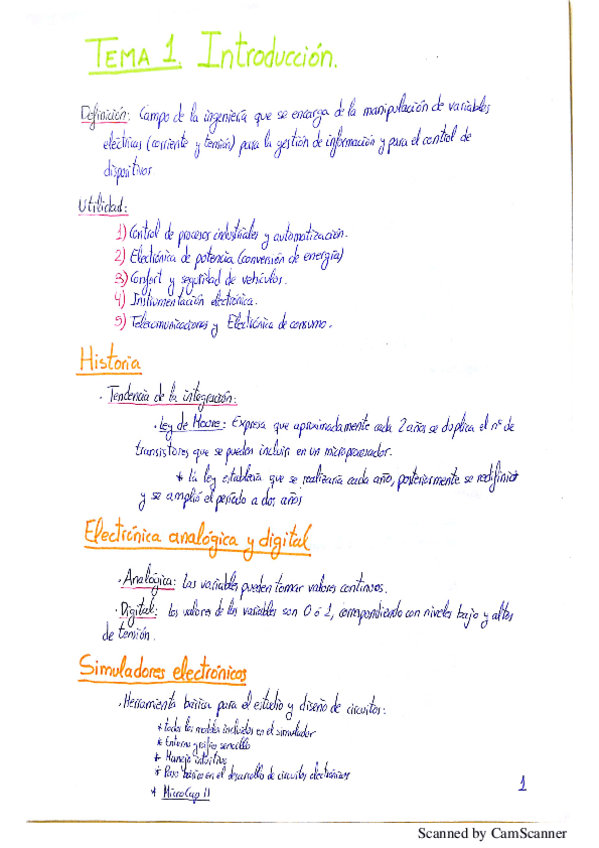 TEMA 1. Introducción.
Definición: Campo de la ingeniería que se encarga de la manipulación de variables
eléctricas (corriente y tensión) para la gestión de información y para el control de
dispositivos
Utilidad:
1) Control de procesos industriales y automatización.
2) Electrónica de potencia (conversión de energía)
3) Confort y seguridad de vehículos.
4) Instrumentación electrónica.
5) Telecomunicaciones y Electrónica de consumo.
Historia
· Tendencia de la integración:
· Ley de Moore: Expresa que aproximadamente cada 2 años se duplica el nº de
transistores que se pueden incluir en un microprocesador.
* La ley establecía que se realizaría cada año, posteriormente se redefinió
y se amplió el período a dos años
Electrónica analógica y digital
· Analógica: Las variables pueden tomar valores continuos.
· Digital: los valores de las variables son 0 ó 1, correspondiendo con niveles bajo y altos
de tensión.
Simuladores electrónicos
· Herramienta básica para el estudio y diseño de circuitos:
* todos los modelos incluidos en el simulador
* Entorno gráfico sencillo
* Manejo intuitivo
* Paso básico en el desarrollo de circuitos electrónicos
* MicroCap 11
1
Scanned by CamScanner